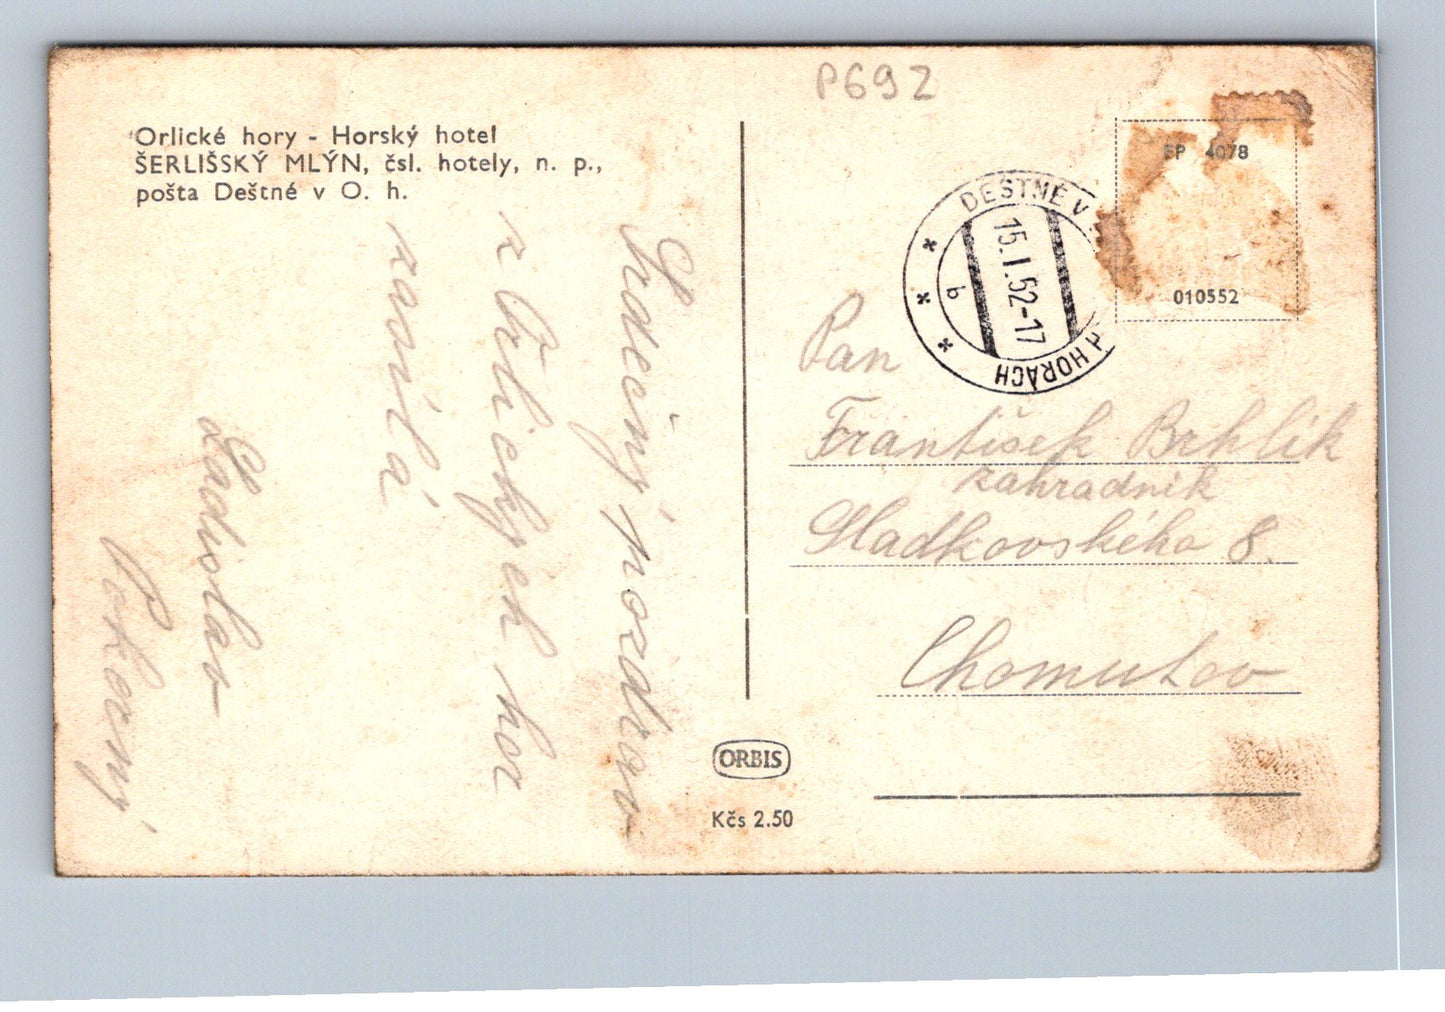 P692
Orlické hory - Horský hotel
ŠERLIŠSKÝ MLÝN, čsl. hotely, n. p.,
pošta Deštné v O. h.
Srdečný pozdrav
z Orlických hor
zasílá
Ladislav
Pokorný
DEŠTNÉ V
HORÁCH
15.I.52-17
b
4078
010552
Pan
František Brhlík
zahradník
Sladkovského 8.
Chomutov
ORBIS
Kčs 2.50